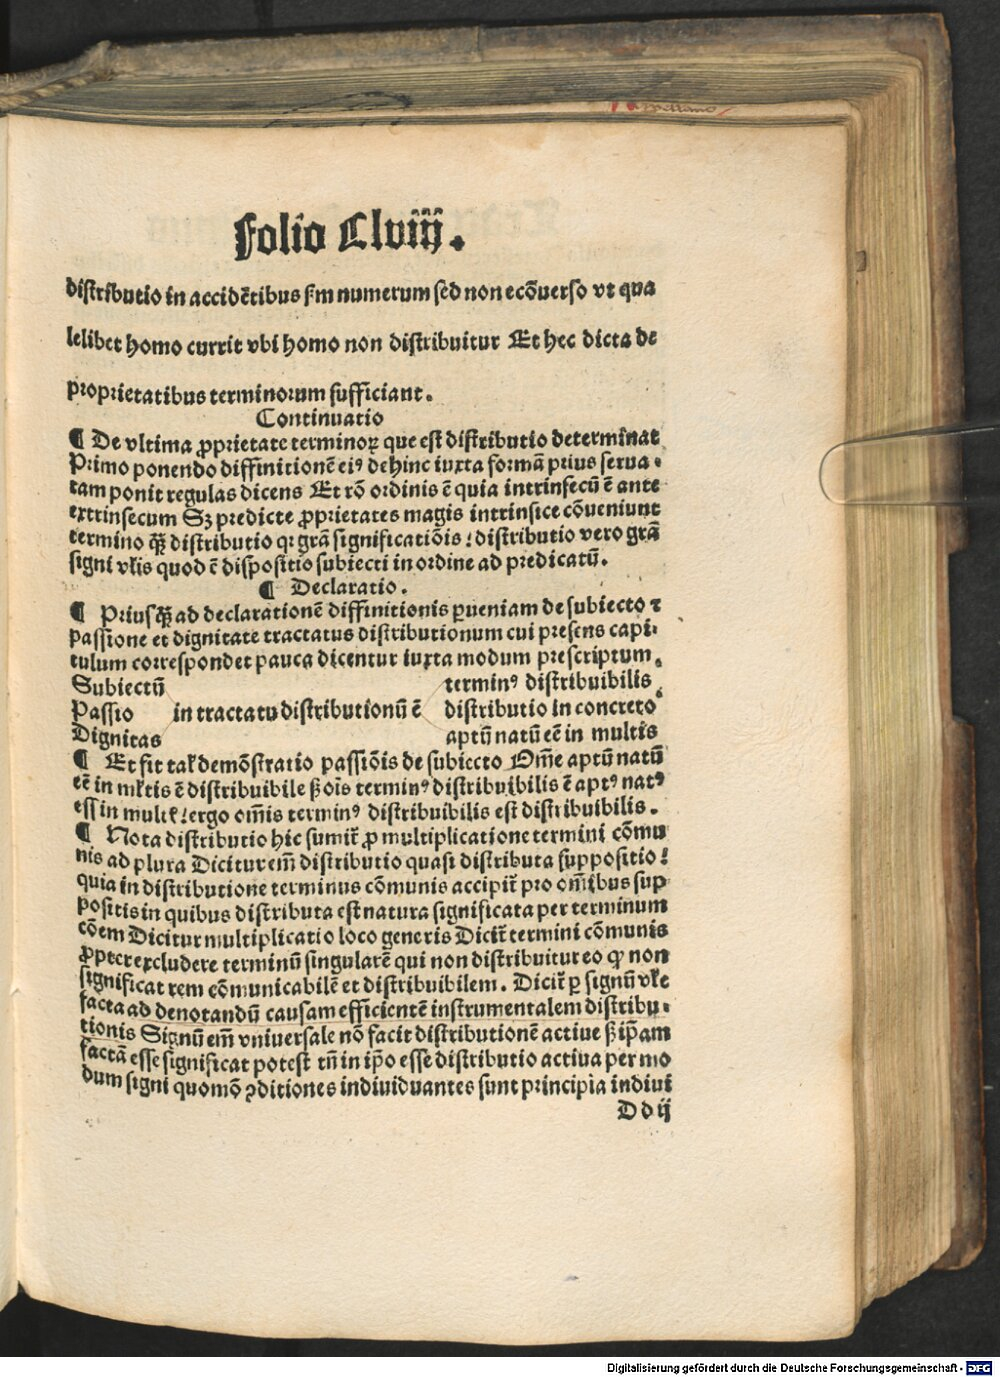 Folio Clviij.
distributio in accidētibus ſm numerum ſed non ecōuerſo vt qua
lelibet homo currit vbi homo non diſtribuitur Et hec dicta de
proprietatibus terminorum ſufficiant.
Continuatio
¶ De vltima ꝓprietate terminoꝝ que eſt diſtributio determinat
Primo ponendo diffinitionē eiꝰ dehinc iuxta formā prius ſerua-
tam ponit regulas dicens Et rō ordinis ē quia intrinſecū ē ante
extrinſecum Sꝫ predicte ꝓprietates magis intrinſice cōueniunt
termino qꝫ̄ diſtributio qꝛ grā ſignificatiōis: diſtributio vero grā
ſigni vl̄is quod ē diſpoſitio ſubiecti in ordine ad predicatū.
¶ Declaratio.
¶ Priuſqꝫ̄ ad declarationē diffinitionis ꝑueniam de ſubiecto ⁊
paſſione et dignitate tractatus diſtributionum cui preſens capi-
tulum correſpondet pauca dicentur iuxta modum preſcriptum.
Subiectū terminꝰ diſtribuibilis
Paſſio in tractatu diſtributionū ē diſtributio in concreto
Dignitas aptū natū eē in multis
¶ Et fit tal̄ demōſtratio paſſiōis de ſubiecto Om̄e aptū natū
eē in ml̄tis ē diſtribuibile ß oīs terminꝰ diſtribuibilis ē aptꝰ natꝰ
eſſ in multꝭ: ergo om̄is terminꝰ diſtribuibilis eſt diſtribuibilis.
¶ Nota diſtributio hic ſumit̄ ꝓ multiplicatione termini cōmu
nis ad plura Dicitur em̄ diſtributio quaſi diſtributa ſuppoſitio:
quia in diſtributione terminus cōmunis accipit̄ pro om̄ibus ſup
poſitis in quibus diſtributa eſt natura ſignificata per terminum
cōem Dicitur multiplicatio loco generis Dicit̄ termini cōmunis
ꝓpter excludere terminū ſingularē qui non diſtribuitur eo ꝙ non
ſignificat rem cōmunicabilē et diſtribuibilem. Dicit̄ ꝑ ſignū vl̄e
facta ad denotandū cauſam efficientē inſtrumentalem diſtribu-
tionis Signū em̄ vniuerſale nō facit diſtributionē actiue ß ip̄am
factā eſſe ſignificat poteſt tn̄ in ip̄o eſſe diſtributio actiua per mo
dum ſigni quomō ꝯditiones indiuiduantes ſunt principia indiui
D d ij
Digitalisierung gefördert durch die Deutsche Forschungsgemeinschaft - DFG